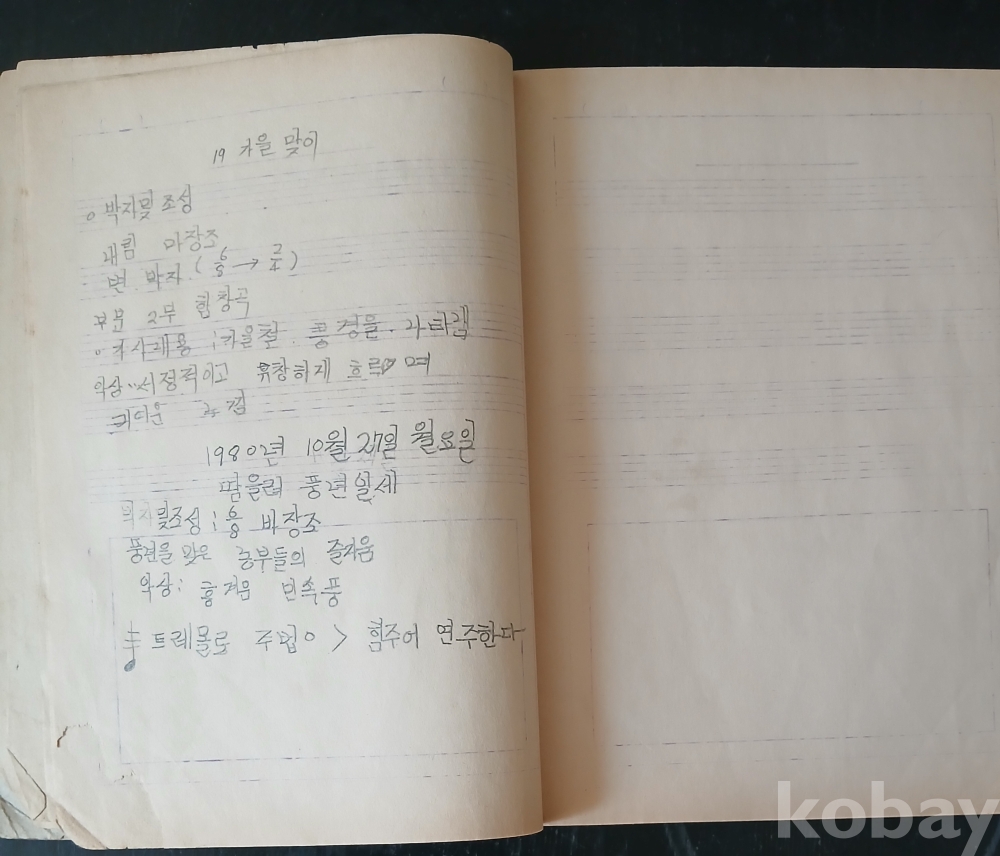 19 가을 맞이
○ 박자및 조성
내림 마장조
변 박자 (6/8 → 2/4)
부분 2부 합창곡
○가사내용 :가을철 풍경을 나타냄
악상··서정적이고 유창하게 흐르며
귀여운 느낌
1980년 10월 27일 월요일
땀흘려 풍년일세
박자및조성 : 6/8 바장조
풍년을 맞은 농부들의 즐거움
악상: 흥겨움 민속풍
트레몰로 주법 > 힘주어 연주한다
kobay